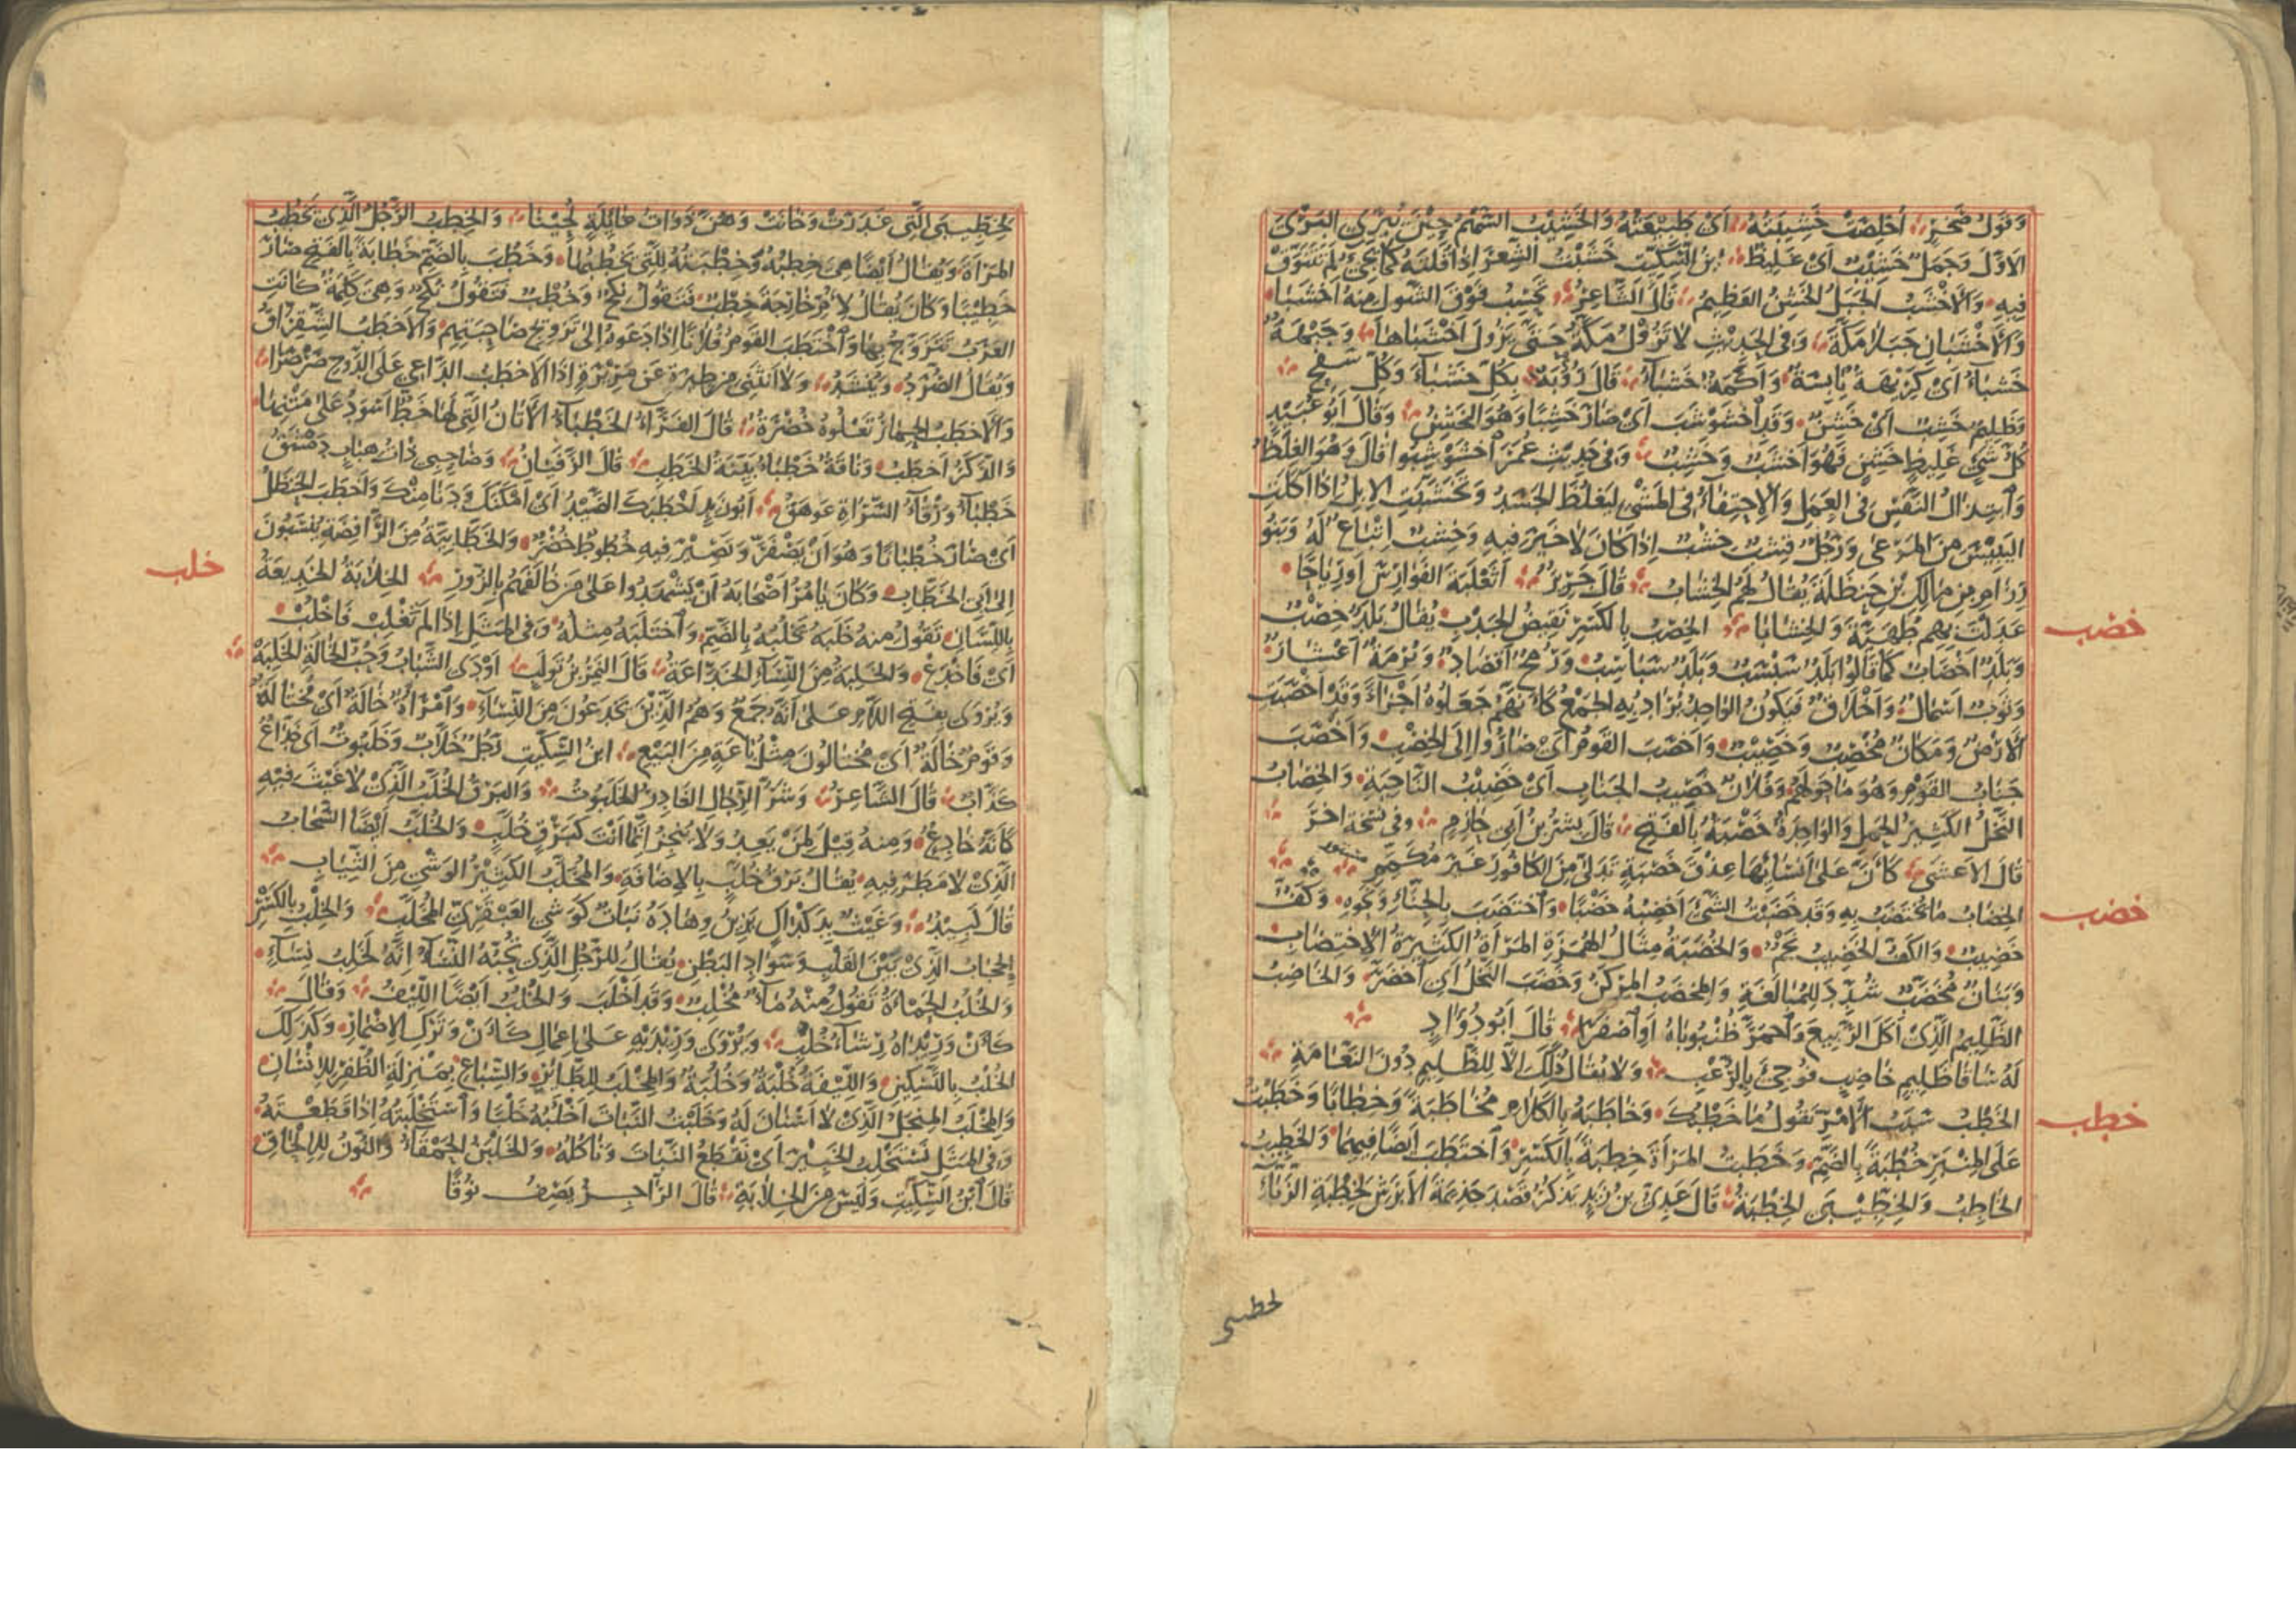 وَقَوْلُ صَخْرٍ أَخْلَصَتْ خَشِيبَتُهُ أَيْ طَبِيعَتُهُ وَالْخَشِيبُ السَّهْمُ حِينَ يُبْرَى الْبَرْيَ
الْأَوَّلَ وَجَمَلٌ خَشِيبٌ أَيْ غَلِيظٌ ابْنُ السِّكِّيتِ خَشَبْتُ الشِّعْرَ إِذَا قُلْتَهُ كَمَا يَجِيءُ لَمْ تَتَنَوَّقْ
فِيهِ وَالْأَخْشَبُ الْجَبَلُ الْخَشِنُ الْعَظِيمُ قَالَ الشَّاعِرُ تَحْسِبُ فَوْقَ الشَّوْلِ مِنْهُ أَخْشَبَا
وَالْأَخْشَبَانِ جَبَلَا مَكَّةَ وَفِي الْحَدِيثِ لَا تَزُولُ مَكَّةُ حَتَّى يَزُولَ أَخْشَبَاهَا وَجَبْهَةٌ
خَشْبَاءُ أَيْ كَرِيهَةٌ يَابِسَةٌ وَأَكَمَةٌ خَشْبَاءُ قَالَ رُؤْبَةُ بِكُلِّ خَشْبَاءَ وَكُلِّ سَفْحٍ
وَظَلِيمٌ خَشِبٌ أَيْ خَشِنٌ وَقَدِ اخْشَوْشَبَ أَيْ صَارَ خَشِبًا وَهُوَ الْخَشِنُ وَقَالَ أَبُو عُبَيْدٍ
كُلُّ شَيْءٍ غَلِيظٍ خَشِنٍ فَهُوَ أَخْشَبُ وَخَشِبٌ وَفِي حَدِيثِ عُمَرَ اخْشَوْشِبُوا قَالَ وَهُوَ الْغِلَظُ
وَابْتِذَالُ النَّفْسِ فِي الْعَمَلِ وَالِاحْتِفَاءُ فِي الْمَشْيِ لِيَغْلُظَ الْجَسَدُ وَتَخَشَّبَتِ الْإِبِلُ إِذَا أَكَلَتْ
الْيَبِيسَ مِنَ الْمَرْعَى وَرَجُلٌ قِشْبٌ خِشْبٌ إِذَا كَانَ لَا خَيْرَ فِيهِ وَخِشْبٌ إِتْبَاعٌ لَهُ وَبَنُو
رِزَامِ بْنِ مَالِكِ بْنِ حَنْظَلَةَ يُقَالُ لَهُمُ الْخِشَابُ قَالَ جَرِيرٌ أَثَعْلَبَةَ الْفَوَارِسَ أَوْ رِيَاحًا
عَدَلْتَ بِهِمْ طُهَيَّةَ وَالْخِشَابَا الْخِصْبُ بِالْكَسْرِ نَقِيضُ الْجَدْبِ يُقَالُ بَلَدٌ خِصْبٌ
خصب
وَبَلَدٌ أَخْصَابٌ كَمَا قَالُوا بَلَدٌ سَبْسَبٌ وَبَلَدٌ سَبَاسِبُ وَرُمْحٌ أَقْصَادٌ وَبُرْمَةٌ أَعْشَارٌ
وَثَوْبٌ أَسْمَالٌ وَأَخْلَاقٌ فَيَكُونُ الْوَاحِدُ يُرَادُ بِهِ الْجَمْعُ كَأَنَّهُمْ جَعَلُوهُ أَجْزَاءً وَقَدْ أَخْصَبَتِ
الْأَرْضُ وَمَكَانٌ مُخْصِبٌ وَخَصِيبٌ وَأَخْصَبَ الْقَوْمُ أَيْ صَارُوا إِلَى الْخِصْبِ وَأَخْصَبَ
جَنَابُ الْقَوْمِ وَهُوَ مَا حَوْلَهُمْ وَفُلَانٌ خَصِيبُ الْجَنَابِ أَيْ خَصِيبُ النَّاحِيَةِ وَالْخِصَابُ
النَّخْلُ الْكَثِيرُ الْحَمْلِ وَالْوَاحِدَةُ خَصْبَةٌ بِالْفَتْحِ قَالَ بِشْرُ بْنُ أَبِي خَازِمٍ وَفِي نُسْخَةٍ أُخْرَى
قَالَ الْأَعْشَى كَأَنَّ عَلَى أَنْسَائِهَا عِذْقَ خَصْبَةٍ تَدَلَّى مِنَ الْكَافُورِ غَيْرَ مُكَمَّمِ
الْخِضَابُ مَا يُخْتَضَبُ بِهِ وَقَدْ خَضَبْتُ الشَّيْءَ أَخْضِبُهُ خَضْبًا وَاخْتَضَبَ بِالْحِنَّاءِ وَنَحْوِهِ وَكَفٌّ
خضب
خَضِيبٌ وَالْكَفُّ الْخَضِيبُ نَجْمٌ وَالْخُضَبَةُ مِثَالُ الْهُمَزَةِ الْمَرْأَةُ الْكَثِيرَةُ الِاخْتِضَابِ
وَبَنَانٌ مُخَضَّبٌ شُدِّدَ لِلْمُبَالَغَةِ وَالْمِخْضَبُ الْمِرْكَنُ وَخَضَبَ النَّخْلُ أَيِ اخْضَرَّ وَالْخَاضِبُ
الظَّلِيمُ الَّذِي أَكَلَ الرَّبِيعَ وَاحْمَرَّ ظُنْبُوبَاهُ أَوِ اصْفَرَّا قَالَ أَبُو دُوَادٍ
لَهُ سَاقَا ظَلِيمٍ خَاضِبٍ فُوجِئَ بِالرُّعْبِ وَلَا يُقَالُ ذَلِكَ إِلَّا لِلظَّلِيمِ دُونَ النَّعَامَةِ
الْخَطْبُ سَبَبُ الْأَمْرِ تَقُولُ مَا خَطْبُكَ وَخَاطَبَهُ بِالْكَلَامِ مُخَاطَبَةً وَخِطَابًا وَخَطَبْتُ
خطب
عَلَى الْمِنْبَرِ خُطْبَةً بِالضَّمِّ وَخَطَبْتُ الْمَرْأَةَ خِطْبَةً بِالْكَسْرِ وَاخْتَطَبَ أَيْضًا فِيهِمَا وَالْخَطِيبُ
الْخَاطِبُ وَالْخِطِّيبَى الْخِطْبَةُ قَالَ عَدِيُّ بْنُ زَيْدٍ يَذْكُرُ قَصْدَ جَذِيمَةَ الْأَبْرَشِ لِخِطْبَةِ الزَّبَّاءِ
لخطيبى
لِخِطِّيبَى الَّتِي غَدَرَتْ وَخَانَتْ وَهُنَّ ذَوَاتُ غَائِلَةٍ لُحِينَا وَالْخِطْبُ الرَّجُلُ الَّذِي يَخْطُبُ
الْمَرْأَةَ وَيُقَالُ أَيْضًا هِيَ خِطْبُهُ وَخِطْبَتُهُ لِلَّتِي يَخْطُبُهَا وَخَطُبَ بِالضَّمِّ خَطَابَةً بِالْفَتْحِ صَارَ
خَطِيبًا وَكَانَ يُقَالُ لِأُمِّ خَارِجَةَ خِطْبٌ فَتَقُولُ نِكْحٌ وَخُطْبٌ فَتَقُولُ نُكْحٌ وَهِيَ كَلِمَةٌ كَانَتِ
الْعَرَبُ تَتَزَوَّجُ بِهَا وَاخْتَطَبَ الْقَوْمُ فُلَانًا إِذَا دَعَوْهُ إِلَى تَزْوِيجِ صَاحِبَتِهِمْ وَالْأَخْطَبُ الشِّقِرَّاقُ
وَيُقَالُ الصُّرَدُ وَيُنْشَدُ وَلَا أَنْثَنِي مِنْ طِيرَةٍ عَنْ مَرِيرَةٍ إِذَا الْأَخْطَبُ الدَّاعِي عَلَى الدَّوْحِ صَرْصَرَا
وَالْأَخْطَبُ الْحِمَارُ تَعْلُوهُ خُضْرَةٌ قَالَ الْفَرَّاءُ الْخَطْبَاءُ الْأَتَانُ الَّتِي لَهَا خَطٌّ أَسْوَدُ عَلَى مَتْنِهَا
وَالذَّكَرُ أَخْطَبُ وَنَاقَةٌ خَطْبَاءُ بَيِّنَةُ الْخَطَبِ قَالَ الزَّفَيَانُ وَصَاحِبِي ذَاتُ هِبَابٍ دَمْشَقُ
خَطْبَاءُ وَرْقَاءُ السَّرَاةِ عَوْهَقُ أَبُو زَيْدٍ أَخْطَبَكَ الصَّيْدُ أَيْ أَمْكَنَكَ وَدَنَا مِنْكَ وَأَخْطَبَ الْحَنْظَلُ
أَيْ صَارَ خُطْبَانًا وَهُوَ أَنْ يَصْفَرَّ وَتَصِيرَ فِيهِ خُطُوطٌ خُضْرٌ وَالْخَطَّابِيَّةُ مِنَ الرَّافِضَةِ يُنْسَبُونَ
إِلَى أَبِي الْخَطَّابِ وَكَانَ يَأْمُرُ أَصْحَابَهُ أَنْ يَشْهَدُوا عَلَى مَنْ خَالَفَهُمْ بِالزُّورِ الْخِلَابَةُ الْخَدِيعَةُ
خلب
بِاللِّسَانِ تَقُولُ مِنْهُ خَلَبَهُ يَخْلُبُهُ بِالضَّمِّ وَاخْتَلَبَهُ مِثْلُهُ وَفِي الْمَثَلِ إِذَا لَمْ تَغْلِبْ فَاخْلُبْ
أَيْ فَاخْدَعْ وَالْخَلِبَةُ مِنَ النِّسَاءِ الْخَدَّاعَةُ قَالَ النَّمِرُ بْنُ تَوْلَبٍ أَوْدَى الشَّبَابُ وَحُبُّ الْخَالَةِ الْخَلِبَهْ
وَيُرْوَى بِفَتْحِ اللَّامِ عَلَى أَنَّهُ جَمْعٌ وَهُمُ الَّذِينَ يَخْدَعُونَ مِنَ النِّسَاءِ وَامْرَأَةٌ خَالَةٌ أَيْ مُخْتَالَةٌ
وَقَوْمٌ خَالَةٌ أَيْ مُخْتَالُونَ مِثْلُ بَاعَةٍ مِنَ الْبَيْعِ ابْنُ السِّكِّيتِ رَجُلٌ خَلَّابٌ وَخَلَبُوتٌ أَيْ خَدَّاعٌ
كَذَّابٌ قَالَ الشَّاعِرُ وَشَرُّ الرِّجَالِ الْغَادِرُ الْخَلَبُوتُ وَالْبَرْقُ الْخُلَّبُ الَّذِي لَا غَيْثَ فِيهِ
كَأَنَّهُ خَادِعٌ وَمِنْهُ قِيلَ لِمَنْ يَعِدُ وَلَا يُنْجِزُ إِنَّمَا أَنْتَ كَبَرْقِ خُلَّبٍ وَالْخُلَّبُ أَيْضًا السَّحَابُ
الَّذِي لَا مَطَرَ فِيهِ يُقَالُ بَرْقُ خُلَّبٍ بِالْإِضَافَةِ وَالْمُخَلَّبُ الْكَثِيرُ الْوَشْيِ مِنَ الثِّيَابِ
قَالَ لَبِيدٌ وَغَيْثٌ بِدَكْدَاكٍ يَزِينُ وِهَادَهُ نَبَاتٌ كَوَشْيِ الْعَبْقَرِيِّ الْمُخَلَّبِ وَالْخِلْبُ بِالْكَسْرِ
الْحِجَابُ الَّذِي بَيْنَ الْقَلْبِ وَسَوَادِ الْبَطْنِ يُقَالُ لِلرَّجُلِ الَّذِي تُحِبُّهُ النِّسَاءُ إِنَّهُ لَخِلْبُ نِسَاءٍ
وَالْخُلْبُ الْحَمْأَةُ تَقُولُ مِنْهُ مَاءٌ مُخْلِبٌ وَقَدْ أَخْلَبَ وَالْخُلْبُ أَيْضًا اللِّيفُ وَقَالَ
كَأَنْ وَرِيدَاهُ رِشَاءُ خُلْبِ وَيُرْوَى وَرِيدَيْهِ عَلَى إِعْمَالِ كَأَنْ وَتَرْكِ الْإِضْمَارِ وَكَذَلِكَ
الْخُلْبُ بِالتَّسْكِينِ وَاللِّيفَةُ خُلْبَةٌ وَخُلُبَةٌ وَالْمِخْلَبُ لِلطَّائِرِ وَالسِّبَاعِ بِمَنْزِلَةِ الظُّفْرِ لِلْإِنْسَانِ
وَالْمِخْلَبُ الْمِنْجَلُ الَّذِي لَا أَسْنَانَ لَهُ وَخَلَبْتُ النَّبَاتَ أَخْلُبُهُ خَلْبًا وَاسْتَخْلَبْتُهُ إِذَا قَطَعْتَهُ
وَفِي الْمَثَلِ نَسْتَخْلِبُ الْخَبِيرَ أَيْ نَقْطَعُ النَّبَاتَ وَنَأْكُلُهُ وَالْخَلْبَنُ الْحَمْقَاءُ وَالنُّونُ لِلْإِلْحَاقِ
قَالَ ابْنُ السِّكِّيتِ وَلَيْسَ مِنَ الْخِلَابَةِ قَالَ الرَّاجِزُ يَصِفُ نُوقًا